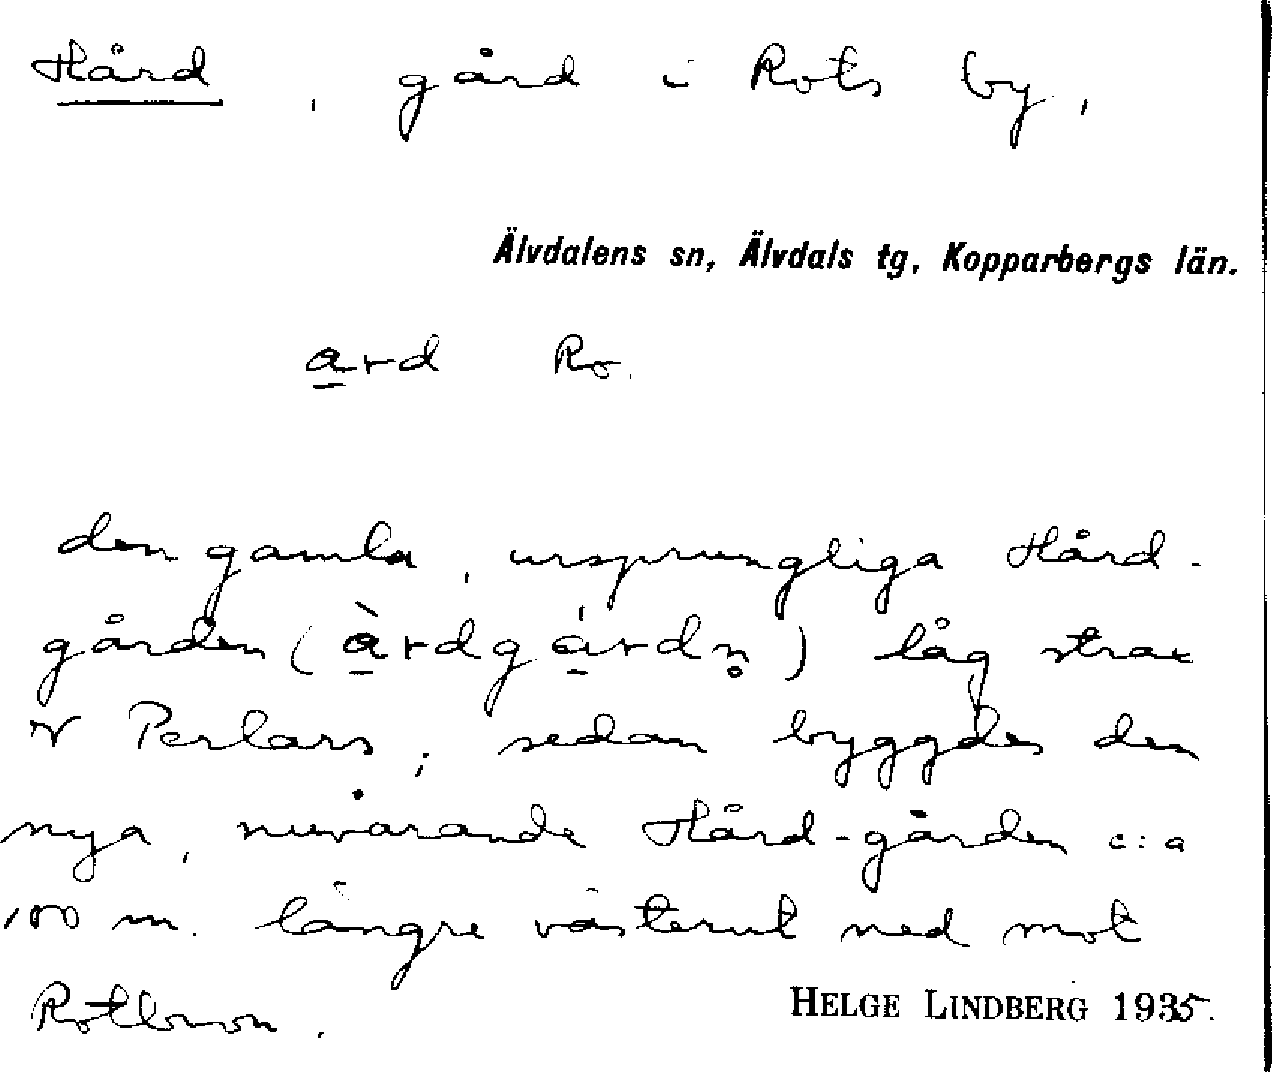 Hård, gård i Rots by,
Älvdalens sn, Älvdals tg, Kopparbergs län.
a̲rd Ro.
den gamla, ursprungliga Hård-
gården (à̲rdgá̲rdn̥) låg strax
V Perlars; sedan byggdes den
nya, nuvarande Hård-gården c:a
100 m. längre västerut ned mot
HELGE LINDBERG 1935.